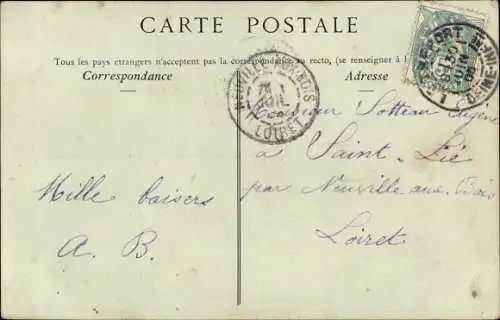 CARTE POSTALE
Tous les pays étrangers n'acceptent pas la correspondance au recto, (se renseigner à l
Correspondance
Adresse
NEUVILLE-AUX-BOIS
LOIRET
Monsieur Sotteau Eugène
à Saint-Lié
par Neuville aux Bois
Loiret
Mille baisers
A. B.